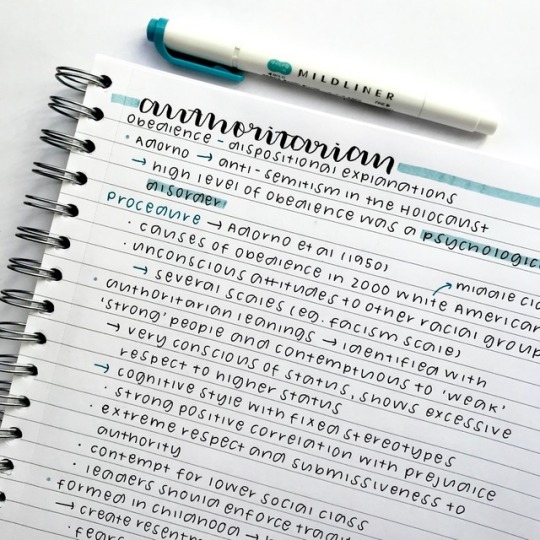 MILDLINER
authoritarian
obedience - dispositional explanations
• Adorno → anti-semitism in the Holocaust
→ high level of obedience was a psychologic
disorder
procedure → Adorno et al (1950)
middle cl
• causes of obedience in 2000 white American
• unconscious attitudes to other racial group
→ several scales (eg. facism scale)
• authoritarian leanings → identified with
'strong' people and contemptuous to 'weak'
→ very conscious of status, shows excessive
respect to higher status
→ cognitive style with fixed stereotypes
• strong positive correlation with prejudice
• extreme respect and submissiveness to
authority
• contempt for lower social class
• leaders should enforce tradit
• formed in childhood →
→ create resentm
• fears